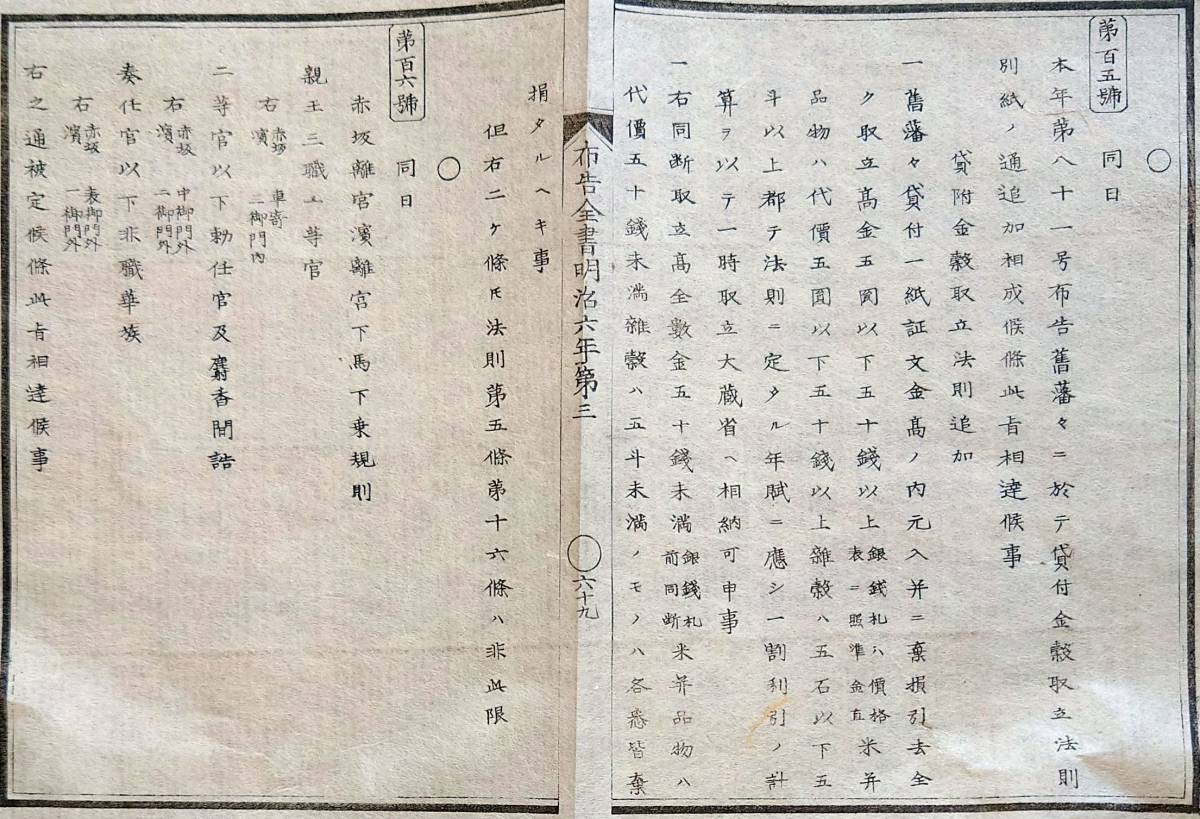 ○
第百五號　同日
本年第八十一号布告舊藩々ニ於テ貸付金穀取立法則
別紙ノ通追加相成候條此旨相達候事
貸附金穀取立法則追加
一舊藩々貸付一紙証文金高ノ内元入并ニ棄損引去全
ク取立高金五圓以下五十錢以上銀銭札ハ價格表ニ照準金直米并
品物ハ代價五圓以下五十錢以上雜穀ハ五石以下五
斗以上都テ法則ニ定タル年賦ニ應シ一割利引ノ計
算ヲ以テ一時取立大蔵省ヘ相納可申事
一右同断取立高全数金五十錢未満銀錢札前同断米并品物ハ
代價五十錢未満雜穀ハ五斗未満ノモノハ各悉皆棄
布告全書明治六年第三
○六十九
捐タルヘキ事
但右二ケ條ヒ法則第五條第十六條ハ非此限
○
第百六號　同日
赤坂離宮濱離宮下馬下乗規則
親王三職一等官
右 赤坂 車寄
濱 二御門内
二等官以下勅任官及麝香間詰
右 赤坂 中御門外
濱 二御門外
奏任官以下非職華族
右 赤坂 表御門外
濱 一御門外
右之通被定候條此旨相達候事